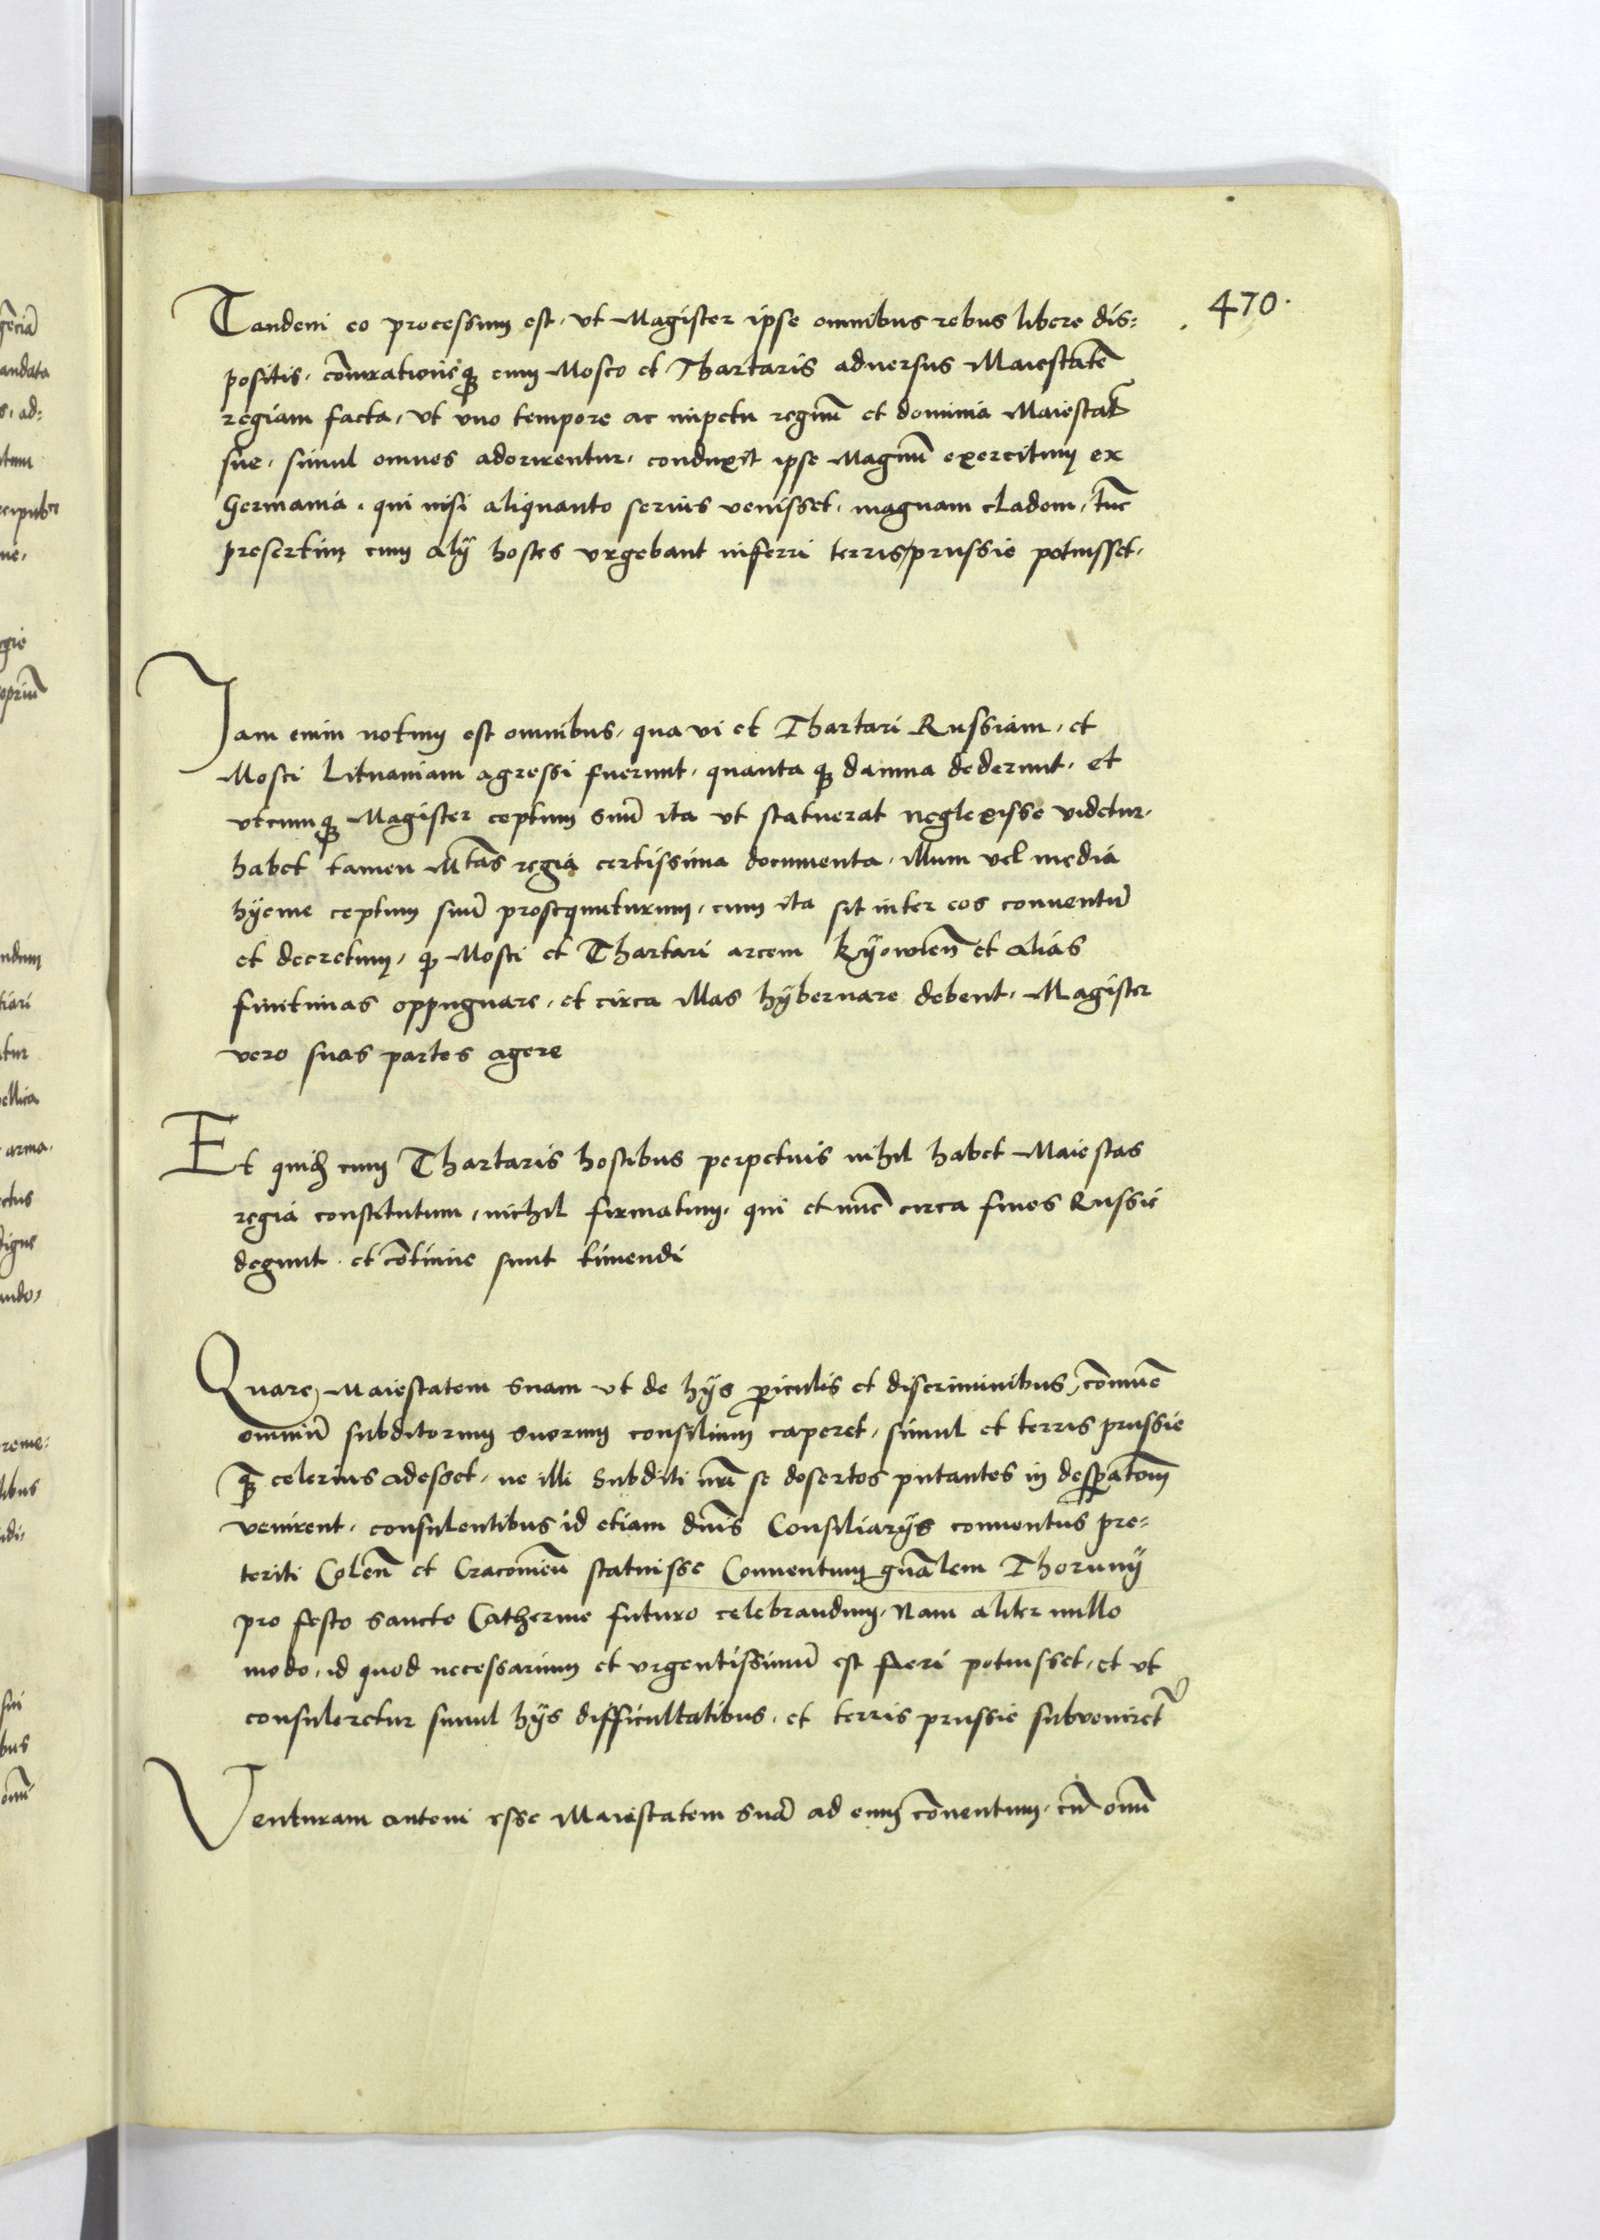 470.
Tandem eo processum est, ut Magister ipse omnibus rebus libere dis=
positis, cōiurationeq̄ cum Mosco et Thartaris adversus Maiestatē
regiam facta, ut uno tempore ac impetu regnū et dominia Maiestat̄
sue, simul omnes adorirentur, conduxit ipse Magnū exercitum ex
Germania, qui nisi aliquanto serius venisset, magnam cladem, tūc
presertim cum alÿ hostes urgebant inferri terris prussie potuisset.
Iam enim notum est omnibus, qua vi et Thartari Russiam, et
Mosci Lituaniam agressi fuerunt, quanta q̄ damna dederunt, et
utcumq̄ Magister ceptum suū ita ut statuerat neglexisse videtur,
habet tamen Mtās regia certissima documenta, illum vel media
hÿeme ceptum suū prosequuturum, cum ita sit inter eos conventū
et decretum, q̄ Mosci et Thartari arcem kÿowien̄ et alias
finitimas oppugnare, et circa illas hÿbernare debent, Magister
vero suas partes agere
Et quid̄ cum Thartaris hostibus perpetuis nihil habet Maiestas
regia constitutum, nichil firmatum, qui et nūc circa fines Russie
degunt, et cōtinue sunt timendi
Quare Maiestatem suam ut de hÿs p̄iculis et discriminibus, cōmūe
omniū subditorum suorum consilium caperet, simul et terris prussie
q̄ celerius adesset, ne illi subditi nr̄i se desertos putantes in desp̄atōem
venirent, consulentibus id etiam dn̄is Consiliarÿs conventus pre=
teriti Colen̄ et Cracovien̄ statuisse Conventum gn̄alem Thorunÿ
pro festo sancte Catherine futuro celebrandum, Nam aliter nullo
modo, id quod necessarium et urgentissimū est fieri potuisset, et ut
consuleretur simul hÿs difficultatibus, et terris prussie subveniret̄
Venturam autem esse Maiestatem suā ad eum cōventum, cū om̄i